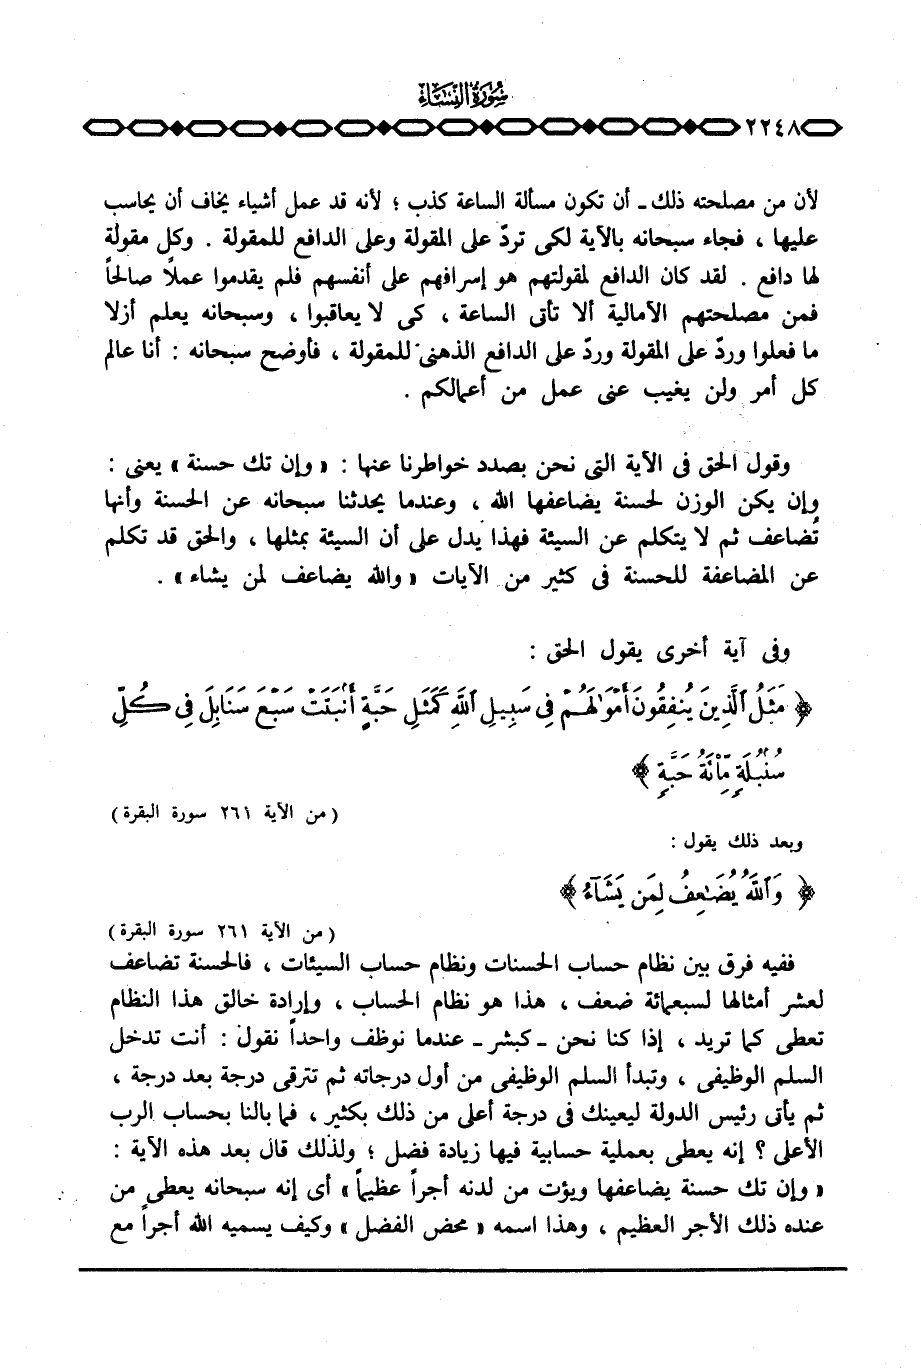 سورة النساء
٢٢٤٨
لأن من مصلحته ذلك ـ أن تكون مسألة الساعة كذب ؛ لأنه قد عمل أشياء يخاف أن يحاسب
عليها ، فجاء سبحانه بالآية لكى تردّ على المقولة وعلى الدافع للمقولة . وكل مقولة
لها دافع . لقد كان الدافع لمقولتهم هو إسرافهم على أنفسهم فلم يقدموا عملاً صالحاً
فمن مصلحتهم الآمالية ألا تأتى الساعة ، كى لا يعاقبوا ، وسبحانه يعلم أزلا
ما فعلوا وردّ على المقولة وردّ على الدافع الذهنى للمقولة ، فأوضح سبحانه : أنا عالم
كل أمر ولن يغيب عنى عمل من أعمالكم .
وقول الحق فى الآية التى نحن بصدد خواطرنا عنها : « وإن تك حسنة » يعنى :
وإن يكن الوزن لحسنة يضاعفها الله ، وعندما يحدثنا سبحانه عن الحسنة وأنها
تُضاعف ثم لا يتكلم عن السيئة فهذا يدل على أن السيئة بمثلها ، والحق قد تكلم
عن المضاعفة للحسنة فى كثير من الآيات « والله يضاعف لمن يشاء » .
وفى آية أخرى يقول الحق :
﴿ مَثَلُ ٱلَّذِينَ يُنفِقُونَ أَمْوَٰلَهُمْ فِى سَبِيلِ ٱللَّهِ كَمَثَلِ حَبَّةٍ أَنۢبَتَتْ سَبْعَ سَنَابِلَ فِى كُلِّ
سُنۢبُلَةٍ مِّا۟ئَةُ حَبَّةٍ ﴾
( من الآية ٢٦١ سورة البقرة )
وبعد ذلك يقول :
﴿ وَٱللَّهُ يُضَٰعِفُ لِمَن يَشَآءُ ﴾
( من الآية ٢٦١ سورة البقرة )
ففيه فرق بين نظام حساب الحسنات ونظام حساب السيئات ، فالحسنة تضاعف
لعشر أمثالها لسبعمائة ضعف ، هذا هو نظام الحساب ، وإرادة خالق هذا النظام
تعطى كما تريد ، إذا كنا نحن ـ كبشر ـ عندما نوظف واحداً نقول : أنت تدخل
السلم الوظيفى ، وتبدأ السلم الوظيفى من أول درجاته ثم تترقى درجة بعد درجة ،
ثم يأتى رئيس الدولة ليعينك فى درجة أعلى من ذلك بكثير ، فما بالنا بحساب الرب
الأعلى ؟ إنه يعطى بعملية حسابية فيها زيادة فضل ؛ ولذلك قال بعد هذه الآية :
« وإن تك حسنة يضاعفها ويؤت من لدنه أجراً عظيماً » أى إنه سبحانه يعطى من
عنده ذلك الأجر العظيم ، وهذا اسمه « محض الفضل » وكيف يسميه الله أجراً مع